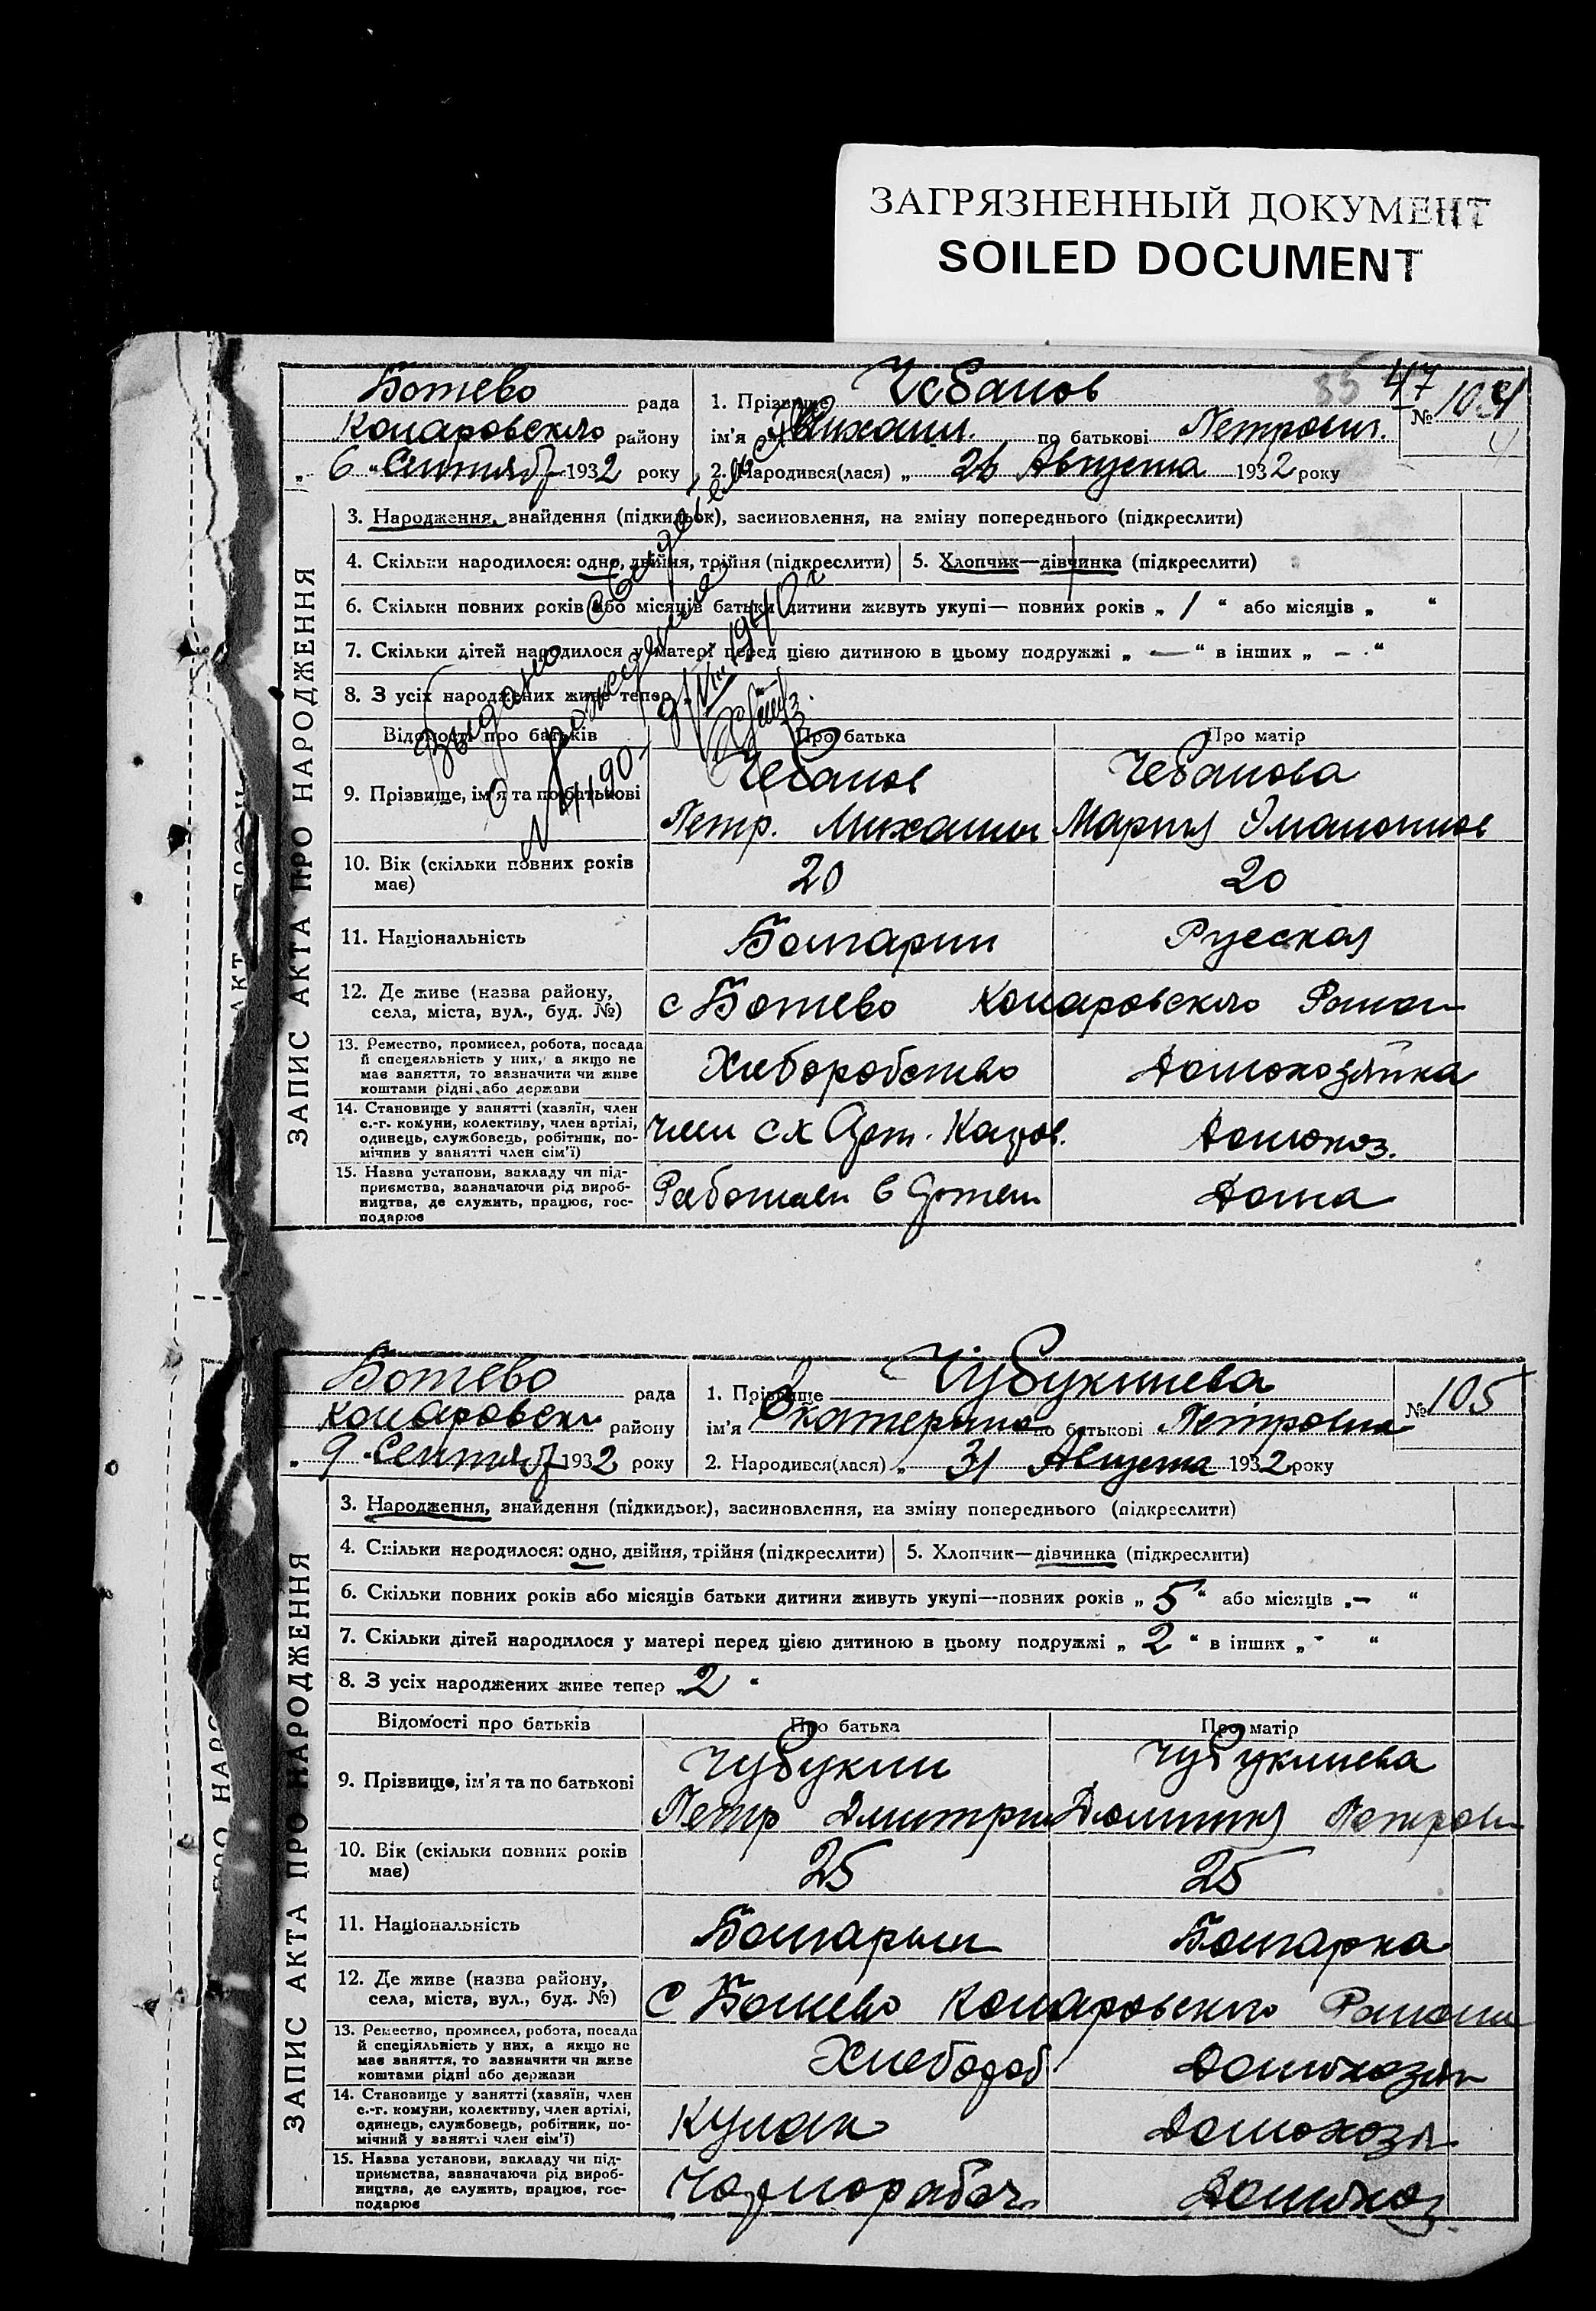 ЗАГРЯЗНЕННЫЙ ДОКУМЕНТ
SOILED DOCUMENT
47
Ботево рада
1. Прізвище Чебанов
№ 104
Коларовского району
ім'я Михаил. по батькові Петрович.
„ 6 " Сентября 1932 року
2. Народився(лася) „ 26 Августа 1932 року
3. Народження, знайдення (підкидьок), засиновлення, на зміну попереднього (підкреслити)
4. Скільки народилося: одно, двійня, трійня (підкреслити)
5. Хлопчик—дівчинка (підкреслити)
6. Скільки повних років або місяців батьки дитини живуть укупі— повних років „ 1 " або місяців „ "
7. Скільки дітей народилося у матері перед цією дитиною в цьому подружжі „ — " в інших „ — "
8. З усіх народжених живе тепер
Выдано свидетельство
о рождении
№ 4190
9/VIII 1940 г
Відомості про батьків
Про батька
Про матір
9. Прізвище, ім'я та по батькові
Чебанов
Петр. Михайлов
Чебанова
Мария
10. Вік (скільки повних років має)
20
20
11. Національність
Болгарин
Русская
12. Де живе (назва району, села, міста, вул., буд. №)
с Ботево Коларовского Район
13. Ремество, промисел, робота, посада й спеціяльність у них, а якщо не має заняття, то зазначити чи живе коштами рідні або держави
Хлеборобство
Домохозяйка
14. Становище у занятті (хазяїн, член с.-г. комуни, колективу, член артілі, одинець, службовець, робітник, помічнив у занятті член сім'ї)
член с х Арт.
Домохоз.
15. Назва установи, закладу чи підприємства, зазначаючи рід виробництва, де служить, працює, господарює
Работает в Артели
Дома
ЗАПИС АКТА ПРО НАРОДЖЕННЯ
Ботево рада
1. Прізвище Чубукчиева
№ 105
Коларовски району
ім'я Екатерина по батькові Петровна
„ 9 " Сентября 1932 року
2. Народився(лася) „ 31 Августа 1932 року
3. Народження, знайдення (підкидьок), засиновлення, на зміну попереднього (підкреслити)
4. Скільки народилося: одно, двійня, трійня (підкреслити)
5. Хлопчик—дівчинка (підкреслити)
6. Скільки повних років або місяців батьки дитини живуть укупі—повних років „ 5 " або місяців „ – "
7. Скільки дітей народилося у матері перед цією дитиною в цьому подружжі „ 2 " в інших „ - "
8. З усіх народжених живе тепер „ 2 "
Відомості про батьків
Про батька
Про матір
9. Прізвище, ім'я та по батькові
Петр Дмитри
Чубукчиева
10. Вік (скільки повних років має)
25
25
11. Національність
Болгарин
Болгарка
12. Де живе (назва району, села, міста, вул., буд. №)
с Ботево Коларовского Района
13. Ремество, промисел, робота, посада й спеціяльність у них, а якщо не має заняття, то зазначити чи живе коштами рідні або держави
Хлебороб
Домохозяйк
14. Становище у занятті (хазяїн, член с.-г. комуни, колективу, член артілі, одинець, службовець, робітник, помічний у занятті член сім'ї)
Кулак
Домохозя
15. Назва установи, закладу чи підприємства, зазначаючи рід виробництва, де служить, працює, господарює
Чорнорабоч.
Домохоз.
ЗАПИС АКТА ПРО НАРОДЖЕННЯ